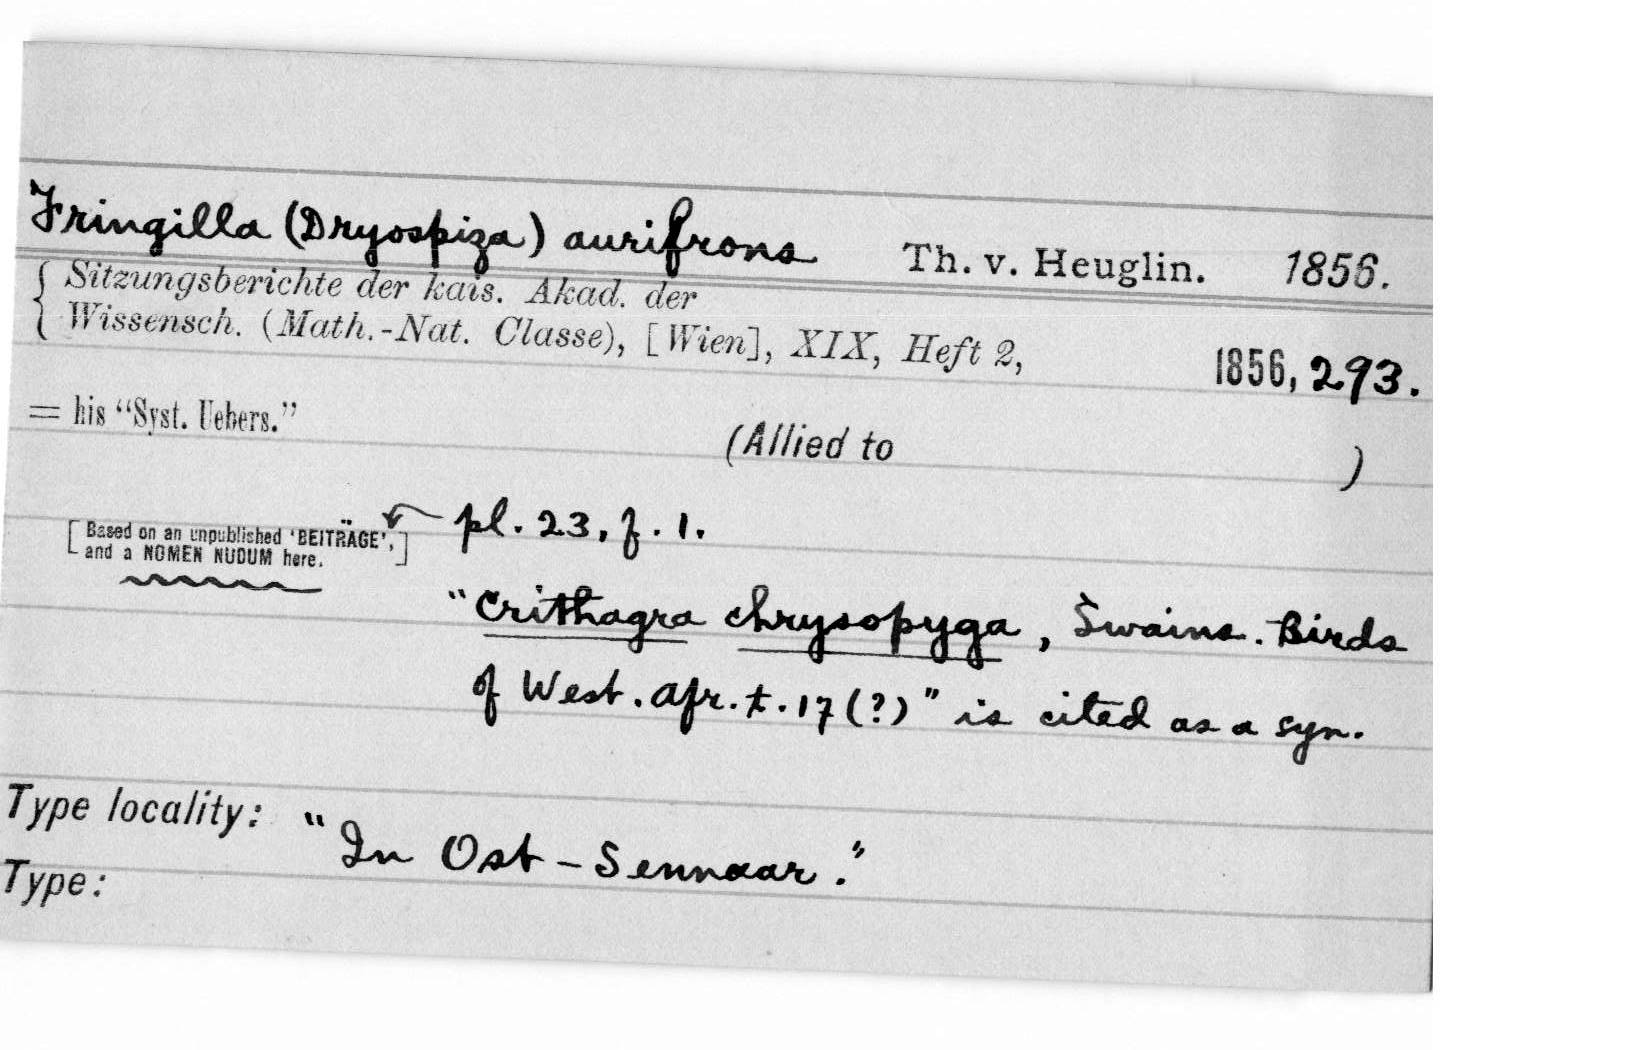 Fringilla (Dryospiza) aurifrons Th. v. Heuglin. 1856.
Sitzungsberichte der kais. Akad. der
Wissensch. (Math.-Nat. Classe), [Wien], XIX, Heft 2, 1856, 293.
= his “Syst. Uebers.”
(Allied to )
pl. 23, f. 1.
[Based on an unpublished ‘BEITRÄGE’,
and a NOMEN NUDUM here.]
"Crithagra chrysopyga, Swains. Birds
of West. Afr. t. 17 (?)" is cited as a syn.
Type locality: "In Ost-Sennaar."
Type: